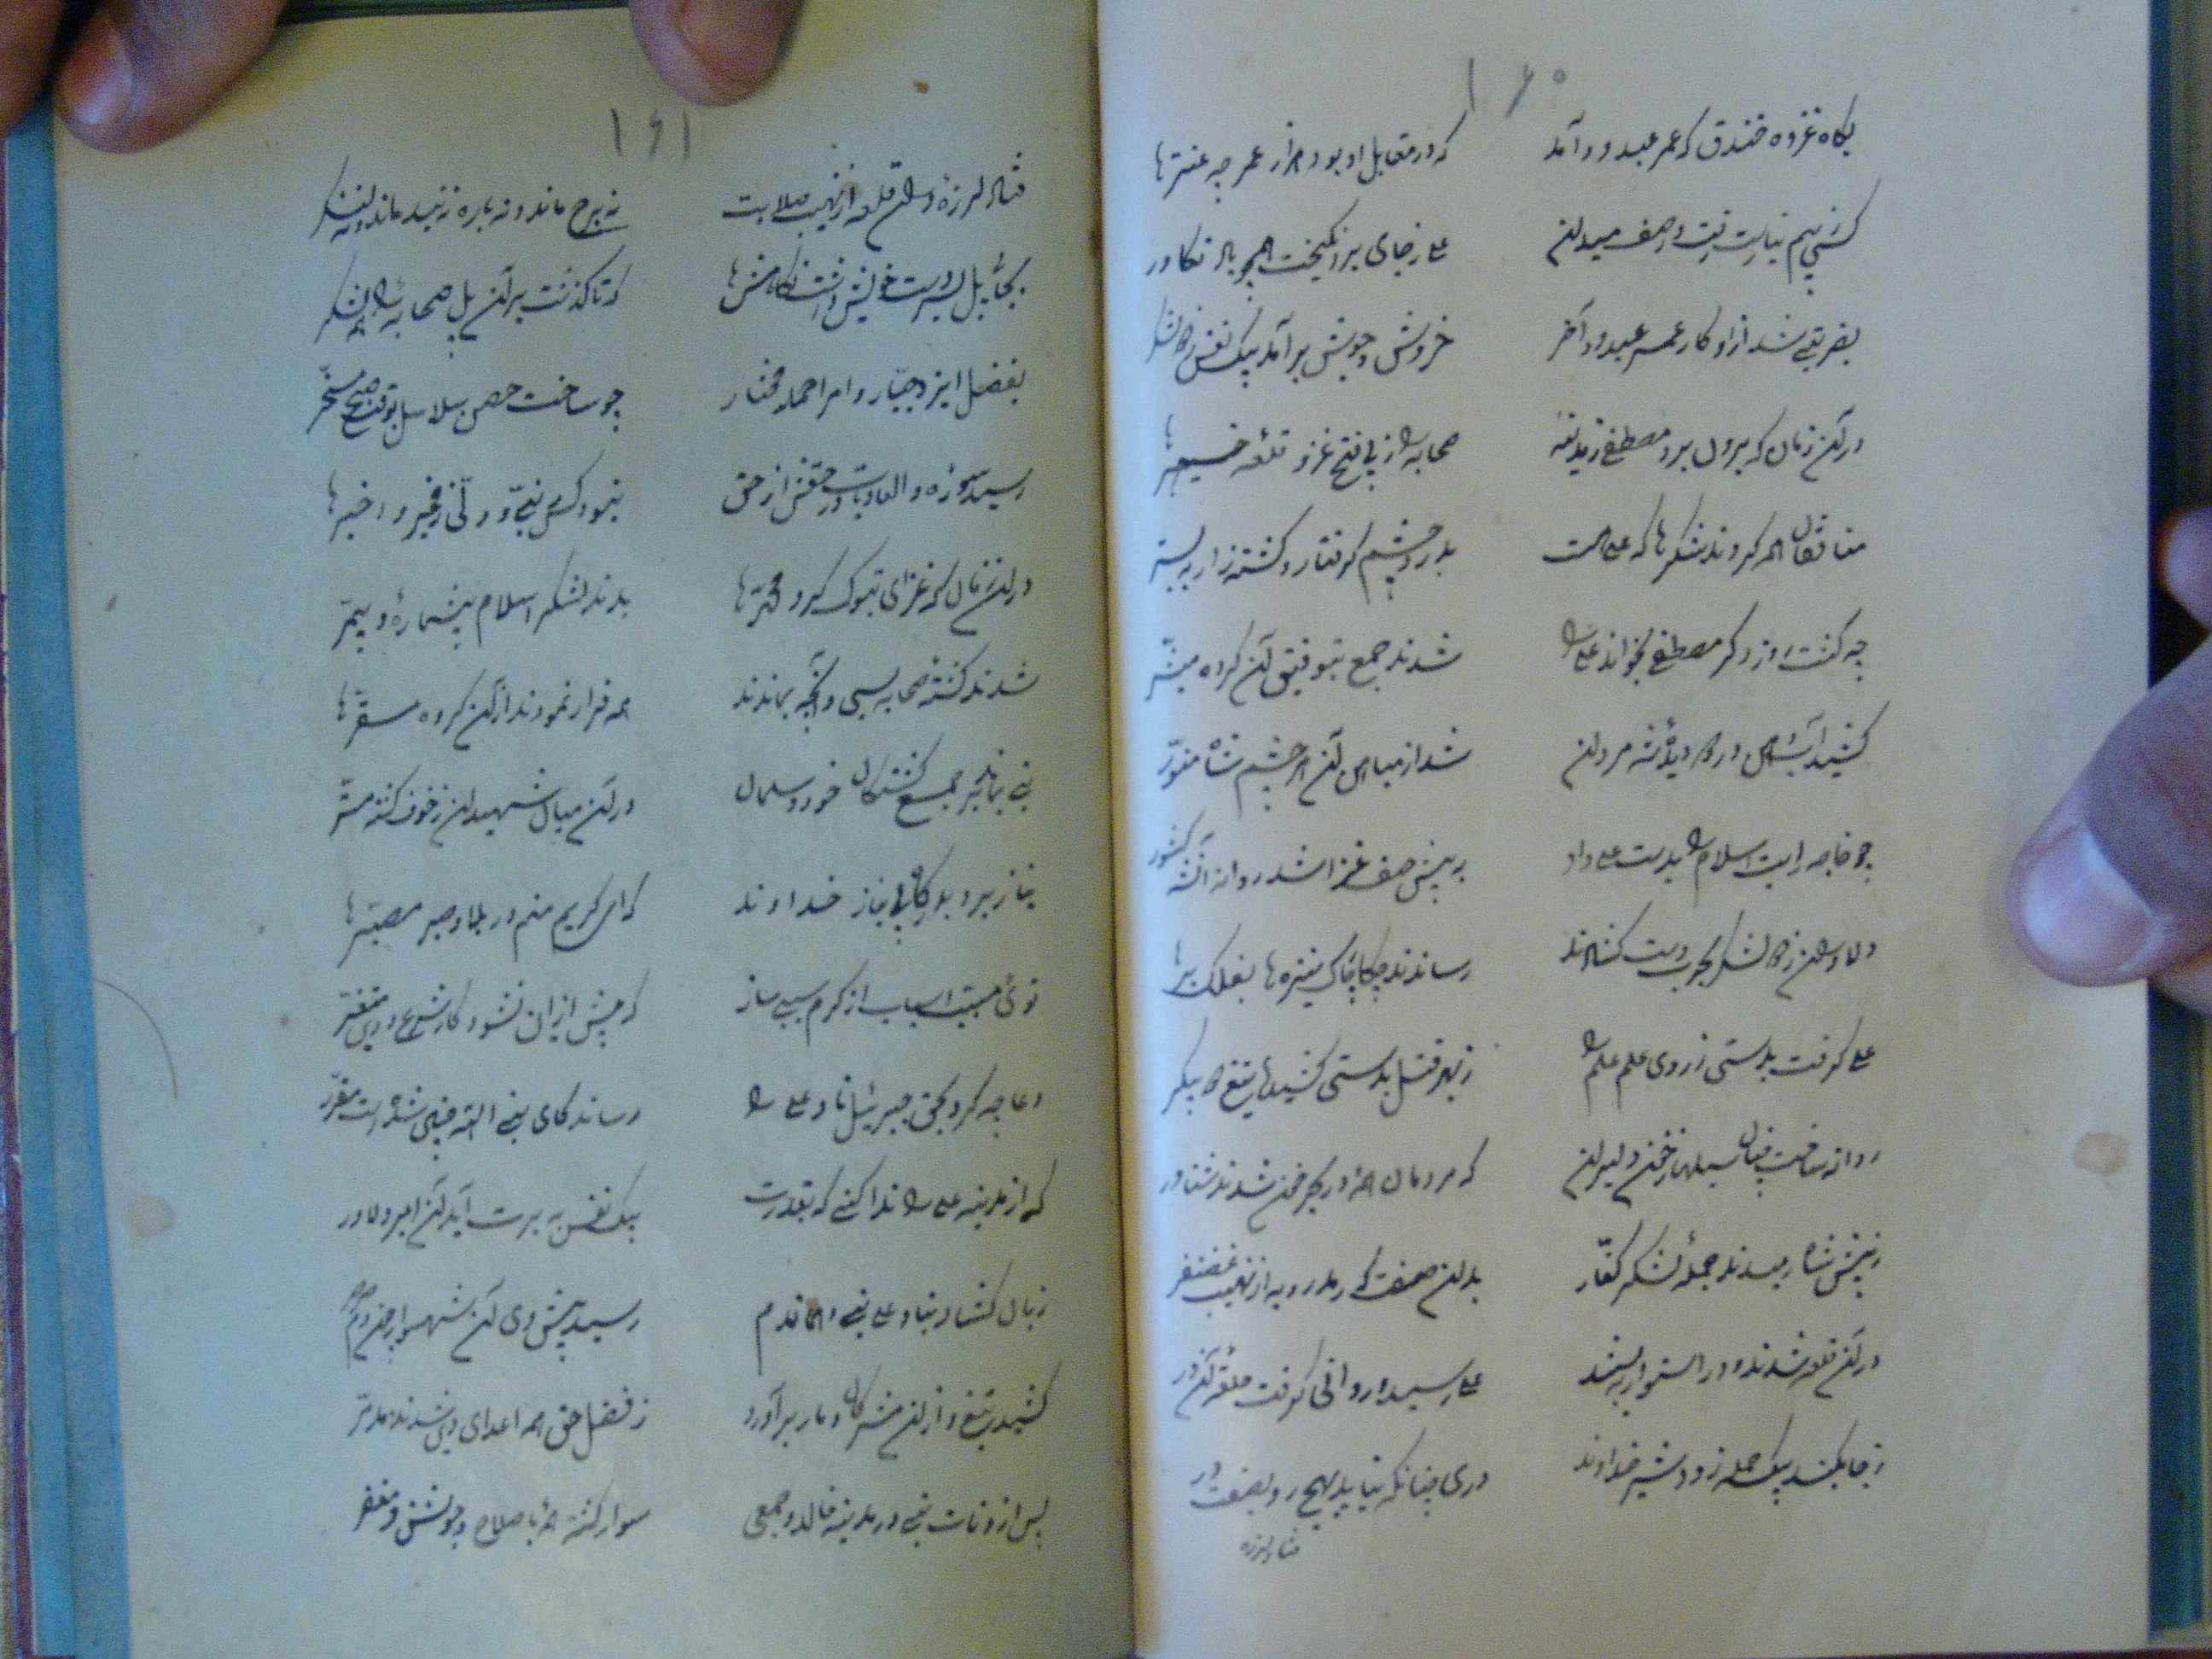 ۱۶۰
بگاه غزوه خندق که عمر عبدود آمد که در مقابل او بود هزار عمر چه عنترها
کسی بهم نیارست رفت در صف میدان علی ز جای برانگیخت همچو باد تکاور
بضربتی شد از او کار عمر عبدود آخر خروش و جوش برآمد بیک نفس ز دو لشکر
در آن زمان که برون برد مصطفی ز مدینه صحابه را ز پی فتح غزو قلعه خیبرها
منافقان همه کردند شکرها که علی هست بدرد چشم گرفتار و گشته زار به بستر
چه گشت روز دگر مصطفی بخواند علی را شدند جمع بتوفیق آن گروه مبشر
کشید آب دهن در دو دیده شه مردان شد از میامن آن هر دو چشم شاه منور
چو خواجه رایت اسلام را بدست علی داد به پیش صف غزا شد روانه آن شه کشور
دلاوران ز دو لشکر بحرب دست گشادند رساندند چکاچاک نیزه‌ها بفلک برها
علی گرفت بدستی ز روی علم علم را ز بهر قتل بدستی کشید تیغ دو پیکر
روانه ساخت چنان سیلها ز خون دلیران که مردمان همه در بحر خون شدند شناور
ز پیش شاه رمیدند جمله لشکر کفار بدان صفت که رمد روبه از نهیب غضنفر
در آن قلعه شدند و در استوار به بستند علی رسید و روانی گرفت حلقه آن در
ز جا بکند بیک حمله زود شیر خداوند دری چنانکه نیاید بهیچ رو بصفت در
فتاد لرزه
۱۶۱
فتاد لرزه در آن قلعه از نهیب صلابت نه برج ماند و نه باره نه بند ماند و نه لنگر
بجای پل بسر دست خویش داشت نگاهش‌ها که تا گذشت بر آن پل صحابه را همه لشکر
بفضل ایزد جبار و امر احمد مختار چو ساخت حصن سلاسل بوقت صبح مسخر
رسید سوره والعادیات در حقش از حق نبود کس نبی و ولی ز مخبر و اخبرها
در آن زمان که غزای تبوک کرد محمدها بدند لشکر اسلام بیشماره و بیمر
شدند کشته صحابه بسی و آنچه بماندند همه فرار نمودند از آن گروه سقرها
نبی بماند بر جمع کشتگان خود و سلمان در آن میان شهیدان ز خوف گشته مستر
نیاز برد بدرگاه بی‌نیاز خداوند که ای کریم منم در بلا و صبر مصبرها
توئی مسبب اسباب از کرم سببی ساز که بیش ازین نشود کار شرع و دین متغیر
دعا چه کرد بحق جبرئیل ناد علی را رساند کای نبی الله چنین شده است مقرر
که از مدینه علی را ندا کنی که بقدرت بیک نفس به برت آید آن امیر دلاور
زبان گشاد بناد علی نبی و هماندم رسید پیش وی آن شهسوار چون
کشید تیغ و از آن مشرکان دمار برآورد ز فضل حق همه اعدای دین شدند مدمر
پس از وفات نبی در مدینه خالد و جمعی سوار گشته همه با صلاح و جوشن و مغفر